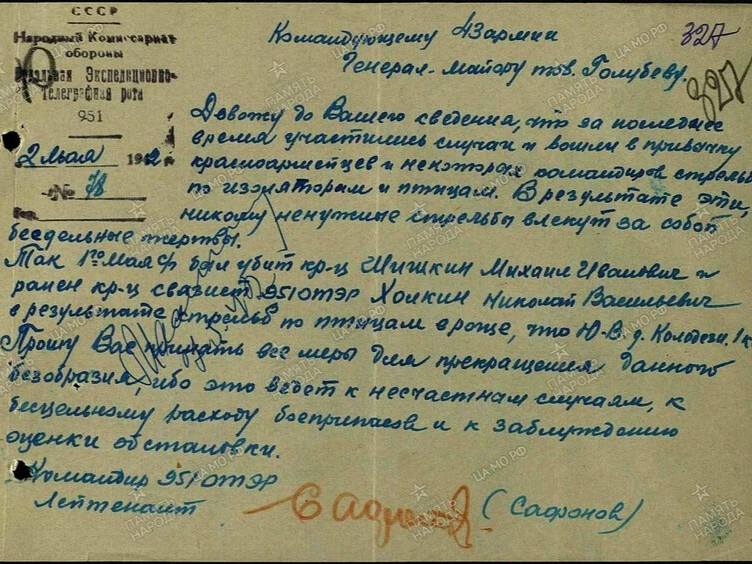 СССР
Народный Комиссариат
обороны
Отдельная Экспедиционно-
Телеграфная рота
951
2 мая 1942 г.
№ 78
327
327
Командующему 43 армии
Генерал-майору тов. Голубеву.
Довожу до Вашего сведения, что за последнее
время участились случаи и вошли в привычку
красноармейцев и некоторых командиров стрельб
по изоляторам и птицам. В результате эти,
никому ненужные стрельбы влекут за собой
бесцельные жертвы.
Так 1го Мая был убит кр-ц Шишкин Михаил Иванович и
ранен кр-ц связист 951 ОТЭР Холкин Николай Васильевич
в результате стрельб по птицам в роще, что Ю-В. д. Колодези. 1к
Прошу Вас принять все меры для прекращения данного
безобразия, ибо это ведет к несчастным случаям, к
бесцельному расходу боеприпасов и к заблуждению
оценки обстановки.
Командир 951 ОТЭР
Лейтенант
(Сафонов)
ПАМЯТЬ НАРОДА
ЦА МО РФ